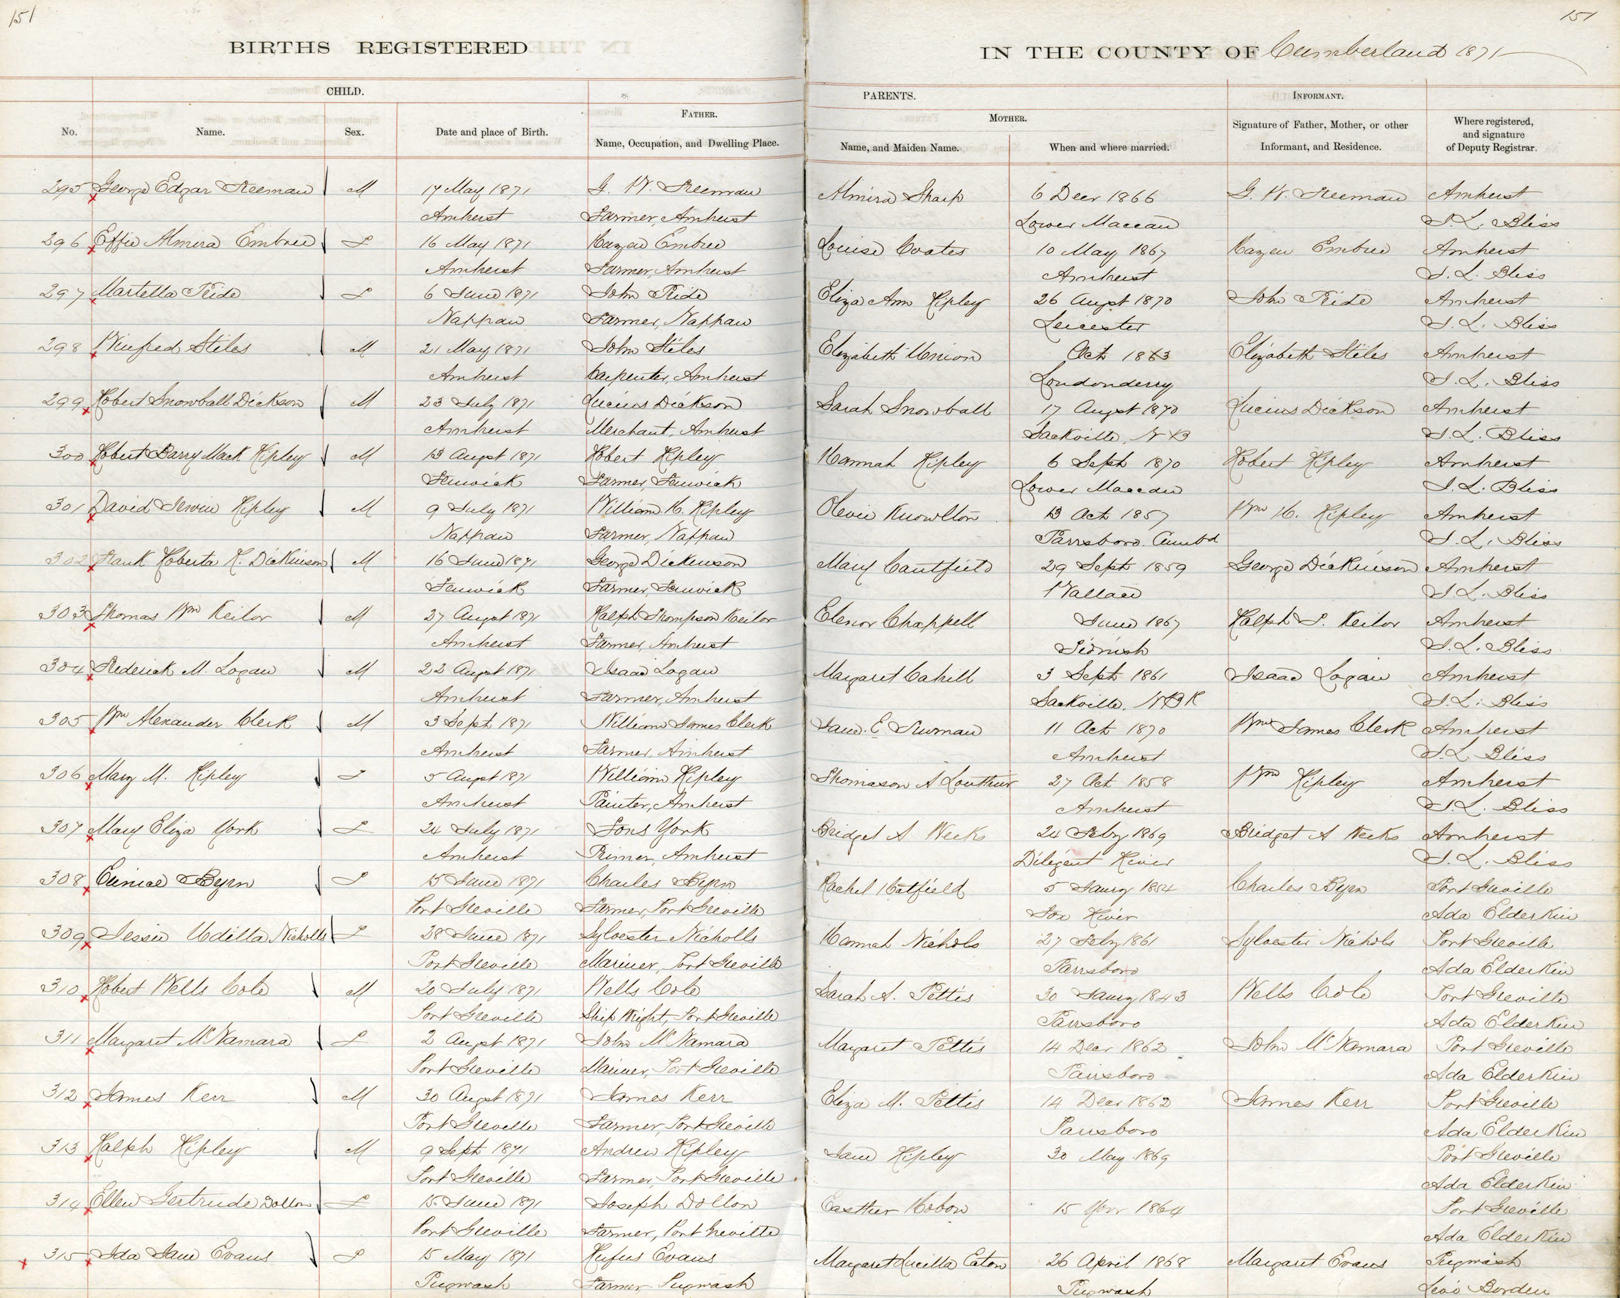 151
151
BIRTHS REGISTERED
IN THE COUNTY OF Cumberland 1871
CHILD.
PARENTS.
INFORMANT.
No.
Name.
Sex.
Date and place of Birth.
FATHER.
Name, Occupation, and Dwelling Place.
MOTHER.
Name, and Maiden Name.
When and where married.
Signature of Father, Mother, or other
Informant, and Residence.
Where registered,
and signature
of Deputy Registrar.
295 George Edgar Freeman M 17 May 1871 G. W. Freeman Almira Sharp 6 Decr 1866 G. W. Freeman Amherst
Amherst Farmer, Amherst Lower Maccan J. L. Bliss
296 Effie Almira Embree F 16 May 1871 Embree Louise Coates 10 May 1867 Embree Amherst
Amherst Farmer, Amherst Amherst J. L. Bliss
297 Martella Fride F 6 June 1871 John Fride Eliza Ann Ripley 26 Augst 1870 John Fride Amherst
Nappan Farmer, Nappan Leicester J. L. Bliss
298 Winfred Stiles M 21 May 1871 John Stiles Elizabeth Union Oct 1863 Elizabeth Stiles Amherst
Amherst Carpenter, Amherst Londonderry J. L. Bliss
299 Robert Snowball Dickson M 23 July 1871 Lucius Dickson Sarah Snowball 17 Augst 1870 Lucius Dickson Amherst
Amherst Merchant, Amherst Sackville, N B J. L. Bliss
300 Robert Barry Mack Ripley M 13 Augst 1871 Robert Ripley Hannah Ripley 6 Sept 1870 Robert Ripley Amherst
Fenwick Farmer, Fenwick Lower Maccan J. L. Bliss
301 David Irwin Ripley M 9 July 1871 William H. Ripley Olevie Knowlton 13 Oct 1857 Wm H. Ripley Amherst
Nappan Farmer, Nappan Parrsboro. Cumbd J. L. Bliss
302 Frank Roberta R. Dickinson M 16 June 1871 George Dickinson Mary Cantfield 29 Sept 1859 George Dickinson Amherst
Fenwick Farmer, Fenwick Wallace J. L. Bliss
303 Thomas Wm Keilor M 27 Augst 1871 Ralph Thompson Keilor Elenor Chappell June 1867 Ralph T. Keilor Amherst
Amherst Farmer, Amherst Tidnish J. L. Bliss
304 Frederick M. Logan M 22 Augst 1871 Isaac Logan Margaret Cahill 3 Sept 1861 Isaac Logan Amherst
Amherst Farmer, Amherst Sackville, J. L. Bliss
305 Wm Alexander Clerk M 3 Sept 1871 William James Clerk Jane. E 11 Oct 1870 Wm James Clerk Amherst
Amherst Farmer, Amherst Amherst J. L. Bliss
306 Mary M. Ripley F 5 Augst 1871 William Ripley Thomason A Lowther 27 Oct 1858 Wm Ripley Amherst
Amherst Painter, Amherst Amherst J. L. Bliss
307 Mary Eliza York F 24 July 1871 York Bridget A Weeks 24 Feby 1869 Bridget A Weeks Amherst
Amherst Amherst Diligent River J. L. Bliss
308 Eunice Byrn F 15 June 1871 Charles Byrn Rachel Hatfield 5 Jany 1854 Charles Byrn Port Greville
Port Greville Farmer, Port Greville Fox River Ada Elderkin
309 Jessie Udilla Nicholls F 28 June 1871 Sylvester Nicholls Hannah Nichols 27 Feby 1861 Sylvester Nichols Port Greville
Port Greville Mariner, Port Greville Parrsboro Ada Elderkin
310 Robert Wells Cole M 20 July 1871 Wells Cole Sarah A. Pettis 30 Jany 1843 Wells Cole Port Greville
Port Greville Ship Wright, Port Greville Parrsboro Ada Elderkin
311 Margaret McNamara F 2 Augst 1871 John McNamara Margaret Pettis 14 Decr 1862 John McNamara Port Greville
Port Greville Mariner, Port Greville Parrsboro Ada Elderkin
312 James Kerr M 30 Augst 1871 James Kerr Eliza M. Pettis 14 Decr 1862 James Kerr Port Greville
Port Greville Farmer, Port Greville Parrsboro Ada Elderkin
313 Ralph Ripley M 9 Sept 1871 Andrew Ripley Jane Ripley 30 May 1869 Port Greville
Port Greville Farmer, Port Greville Ada Elderkin
314 Ellen Gertrude Dolton F 15 June 1871 Joseph Dolton Easther Hobon 15 1864 Port Greville
Port Greville Farmer, Port Greville Ada Elderkin
315 Ida Jane Evans F 15 May 1871 Rufus Evans Margaret Lucilla Eaton 26 April 1868 Margaret Evans Pugwash
Pugwash Farmer Pugwash Pugwash Levi Borden